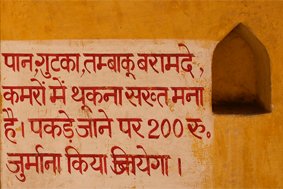 पान,गुटका,तम्बाकू बरामदे,
कमरों में थूकना सख्त मना
है। पकड़े जाने पर 200 रु॰
जुर्माना किया जायेगा।